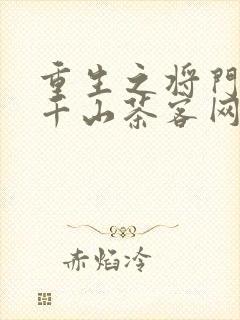 重生之将门
千山茶客网
赤焰冷